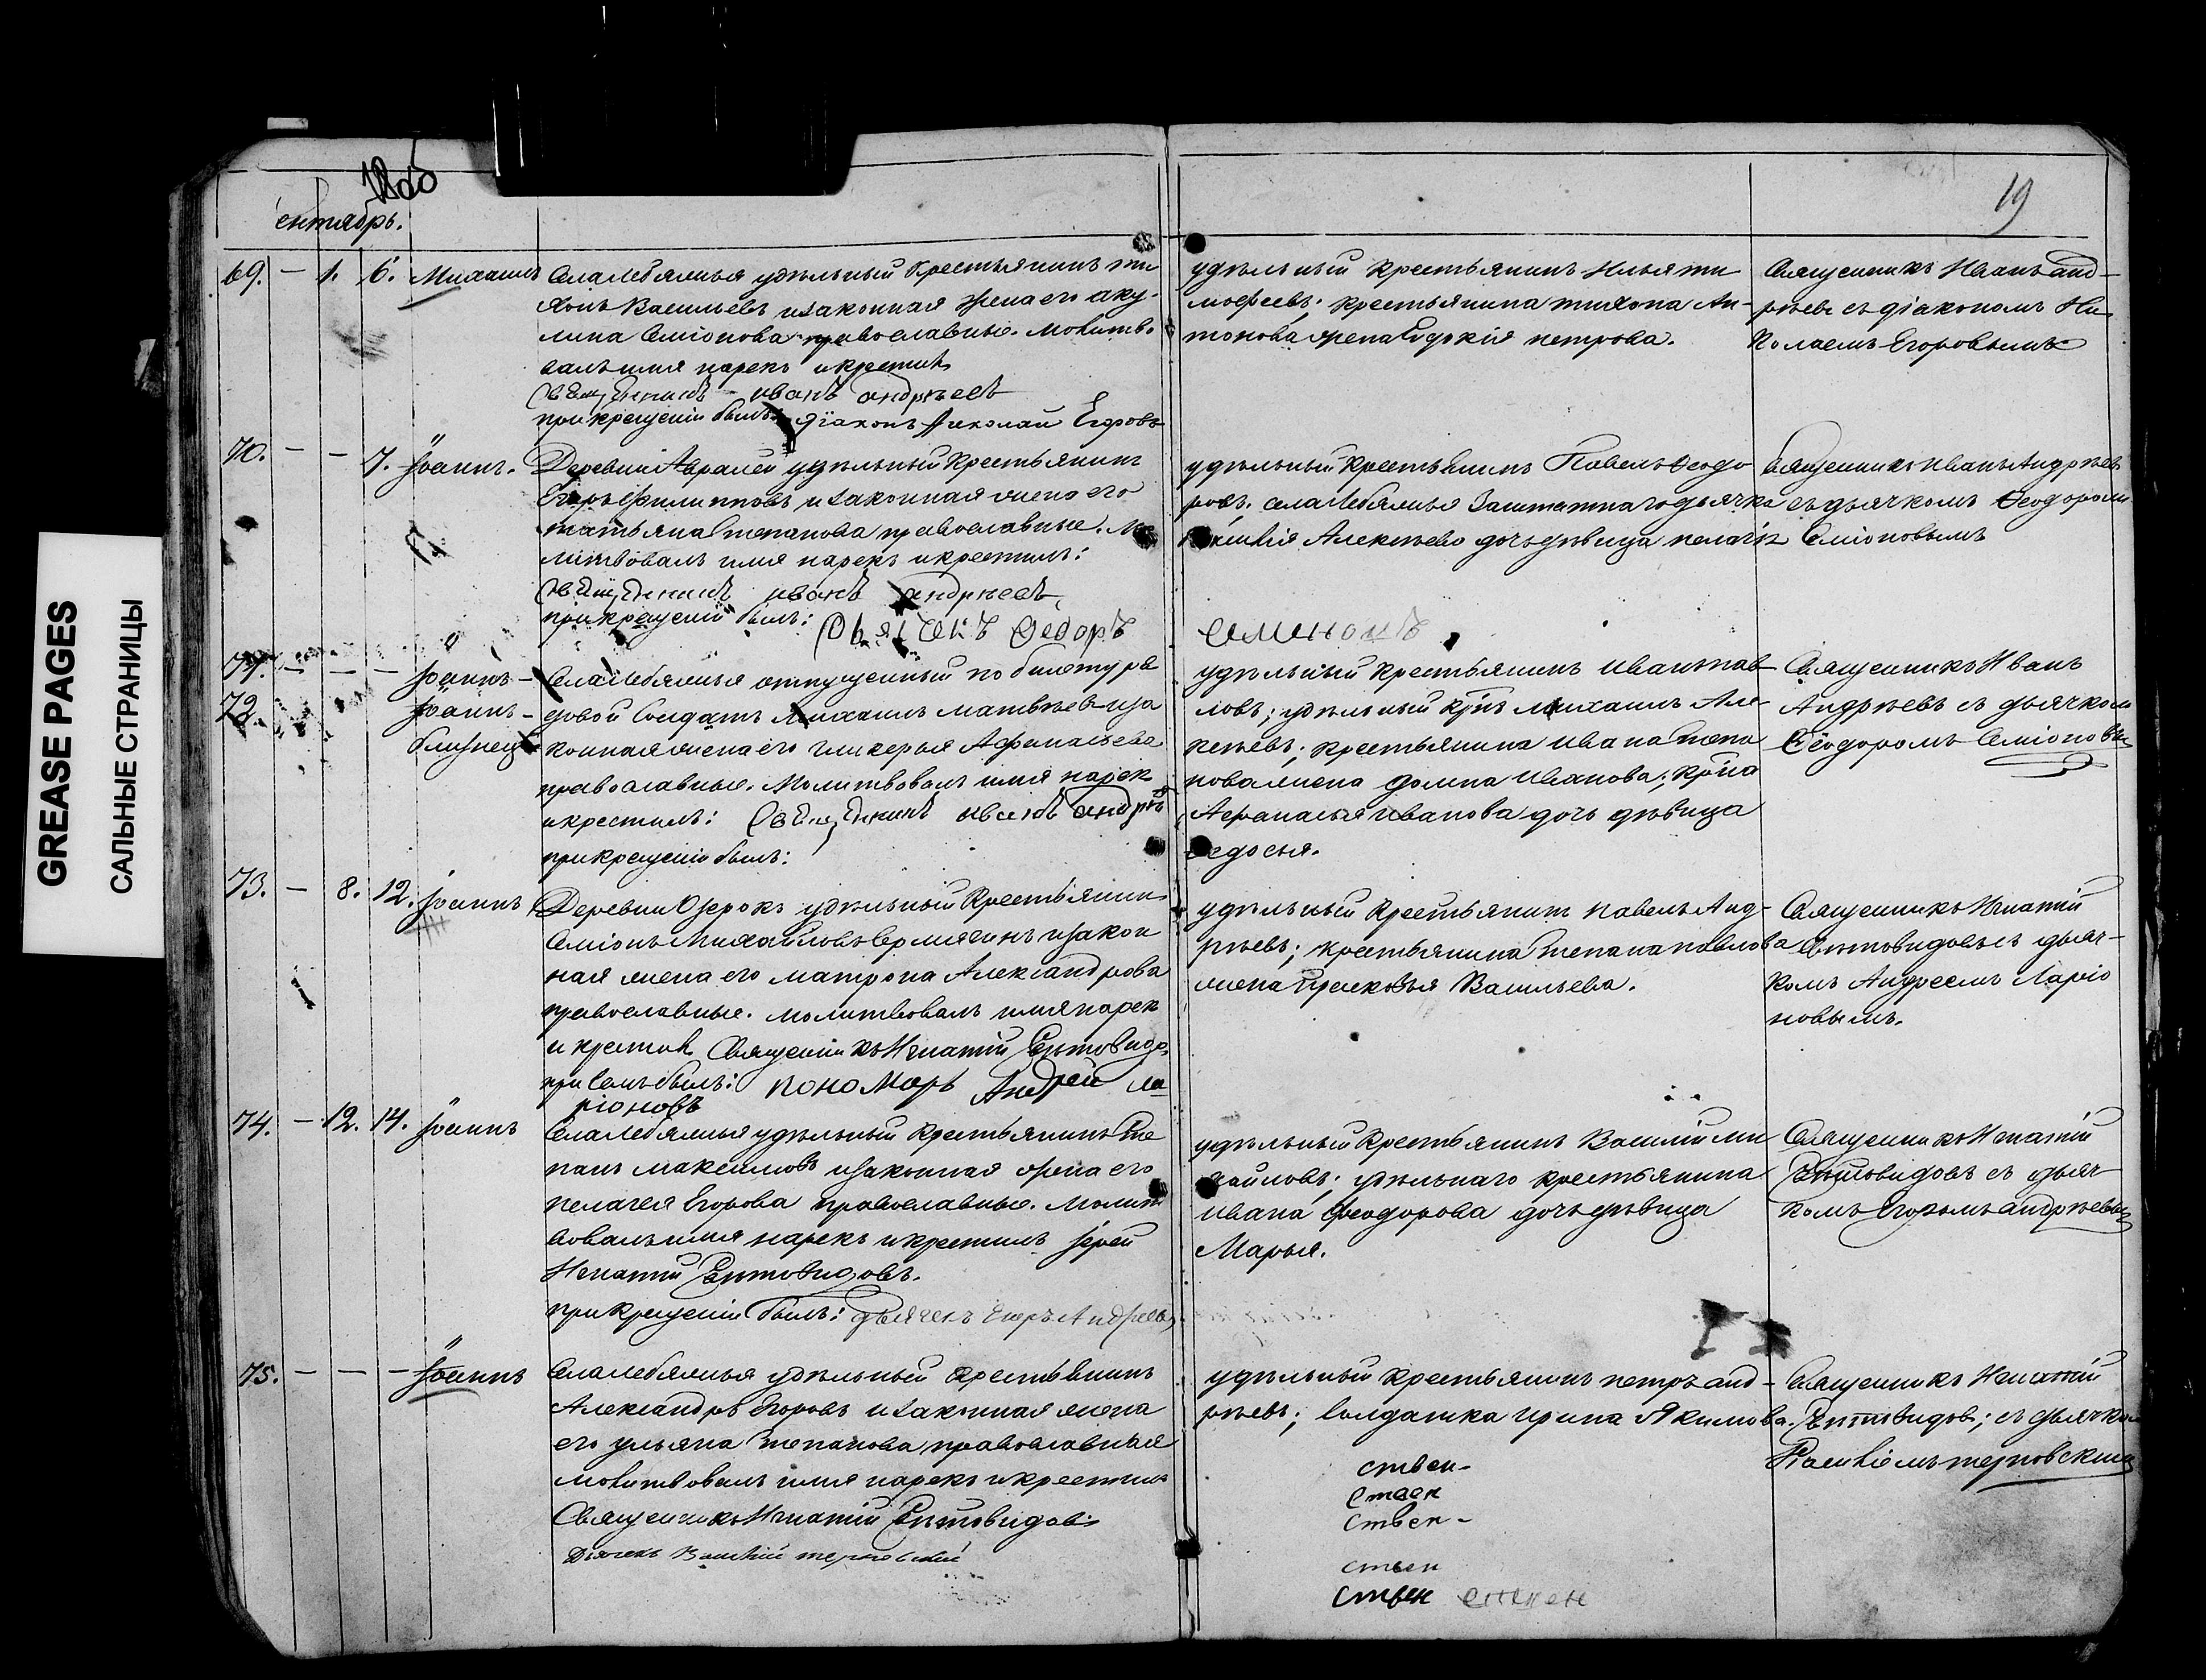 GREASE PAGES
САЛЬНЫЕ СТРАНИЦЫ
19
сентябрь.
69. — 1. 6. Михаилъ
Села Лебяжья удѣльный крестьянинъ Ти
хонъ Васильевъ и законная жена его Аку-
лина Семіонова православные. Молитво
валъ имя нарекъ и крестилъ
Священникъ иванъ андрѣевъ
при крещеніи былъ: Діаконъ Николай Егоровъ
удѣльный крестьянинъ Илья Ти
мофеевъ; крестьянина Тихона Ан-
тонова жена Евдокія Петрова.
Священникъ Иванъ Анд-
рѣевъ съ діакономъ Ни
колаемъ Егоровымъ
70. — — 7. Іоаннъ.
Деревни Авралей удѣльный крестьянинъ
Егоръ Филипповъ и законная жена его
Татьяна Степанова православные. Мо
литвовалъ имя нарекъ и крестилъ:
Священникъ иванъ андрѣевъ
при крещеніи былъ: Дьячекъ Ѳедоръ
удѣльный крестьянинъ Павелъ Ѳеодо
ровъ. села Лебяжья Заштатнаго дьячка
Алексѣева дочь дѣвица Пелагія
семеновъ
Священникъ Иванъ Андрѣевъ
съ дьячкомъ Ѳеодоромъ
Семіоновымъ
71. — — — Іоаннъ —
72. Іоаннъ —
близнецы
Села Лебяжья отпущенный по билету ря
довой Солдатъ Михаилъ Матвѣевъ и за
конная жена его Гликерья Афанасьева
православные. Молитвовалъ имя нарекъ
и крестилъ: Священникъ иванъ андрѣевъ
при крещеніи былъ:
удѣльный крестьянинъ Иванъ Пав
ловъ; удѣльный крнъ Михаилъ Але-
ксѣевъ; крестьянина Ивана Степа
нова жена Домна Иванова; крна
Афанасья Иванова дочь дѣвица
Ѳедосья.
Священникъ Иванъ
Андрѣевъ съ дьячком
Ѳеодоромъ Семіоновы
73. — 8. 12. Іоаннъ
Деревни Озерокъ удѣльный крестьянинъ
Семіонъ Михайловъ и закон
ная жена его Матрона Александрова
православные. Молитвовалъ имя нарекъ
и крестилъ Священникъ Игнатій Свѣтовидовъ
при семъ былъ: пономарь Андрей ла
ріоновъ
удѣльный крестьянинъ Павелъ Анд-
рѣевъ; крестьянина Степана Павлова
жена Прасковья Васильева.
Священникъ Игнатій
Свѣтовидовъ съ дьяч-
комъ Андреемъ Ларіо
новымъ.
74. — 12. 14. Іоаннъ
Села Лебяжья удѣльный крестьянинъ Сте
панъ Максимовъ и законная жена его
Пелагея Егорова православные. Молит
вовалъ имя нарекъ и крестилъ Іерей
Игнатій Свѣтовидовъ.
при крещеніи былъ: дьячекъ Егоръ Андреевъ
удѣльный крестьянинъ Василій Ми
хайловъ; удѣльнаго крестьянина
Ивана Феодорова дочь дѣвица
Марья.
Священникъ Игнатій
Свѣтовидовъ съ дьяч
комъ Егоромъ Андрѣевы
75. — — — Іоаннъ
Села Лебяжья удѣльный крестьянинъ
Александръ Егоровъ и законная жена
его Ульяна Степанова православные
Молитвовалъ имя нарекъ и крестилъ
Священникъ Игнатій Свѣтовидовъ
Дьячекъ Василій терновскій
удѣльный крестьянинъ Петръ Анд-
рѣевъ; Солдатка Ирина Якимова.
ствен-
ствен
ствен-
ствен
ствен
Священникъ Игнатій
Свѣтовидовъ; съ дьячком
Василіемъ терновским